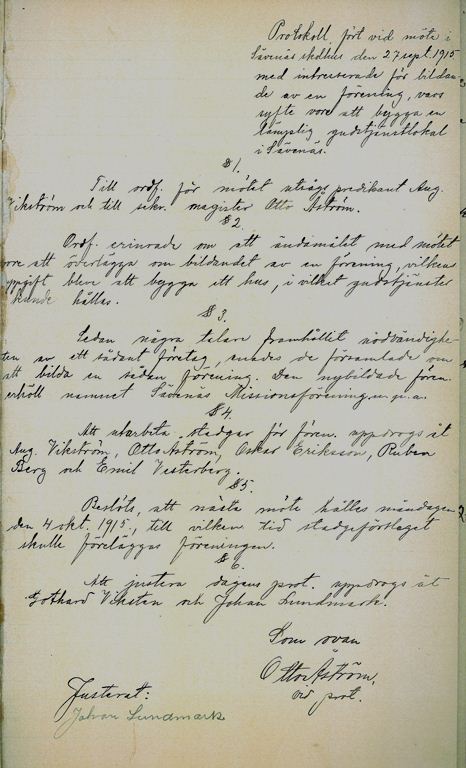 Protokoll, fört vid möte i
Sävenäs skolhus den 27 sept. 1915
med intresserade för bildan-
de av en förening, vars
syfte vore att bygga en
lämplig gudstjänstlokal
i Sävenäs.
§ 1.
Till ordf. för mötet utsågs predikant Aug.
Vikström och till sekr. magister Otto Åström.
§ 2.
Ordf. erinrade om att ändamålet med mötet
vore att överlägga om bildandet av en förening, vilkens
uppgift bleve att bygga ett hus, i vilket gudstjänster
kunde hållas.
§ 3.
Sedan några talare framhållit nödvändighe-
ten av ett sådant företag, enades de församlade om
att bilda en sådan förening. Den nybildade fören.
erhöll namnet Sävenäs Missionsförening u. p. a.
§ 4.
Att utarbeta stadgar för fören. uppdrogs åt
Aug. Vikström, Otto Åström, Oskar Eriksson, Ruben
Berg och Emil Vesterberg.
§ 5.
Beslöts, att nästa möte hålles måndagen
den 4 okt. 1915, till vilken tid stadgeförslaget
skulle föreläggas föreningen.
§ 6.
Att justera dagens prot. uppdrogs åt
Gothard Viksten och Johan Lundmark.
Som ovan
Otto Åström,
vid prot.
Justerat:
Johan Lundmark